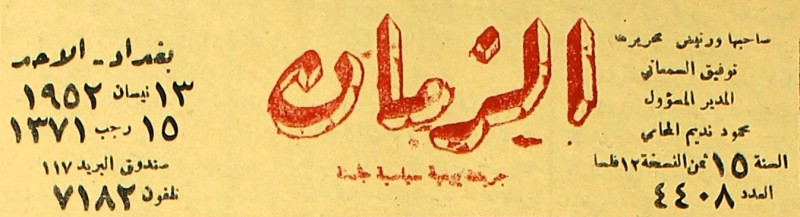 صاحبها ورئيس تحريرها
توفيق السمعاني
المدير المسؤول
محمود نديم المحامي
السنة ١٥ ثمن النسخة ١٢ فلسا
العدد ٤٤٠٨
الزمان
جريدة يومية سياسية
بغداد - الاحد
١٣ نيسان ١٩٥٢
١٥ رجب ١٣٧١
صندوق البريد ١١٧
تلفون ٧١٨٢